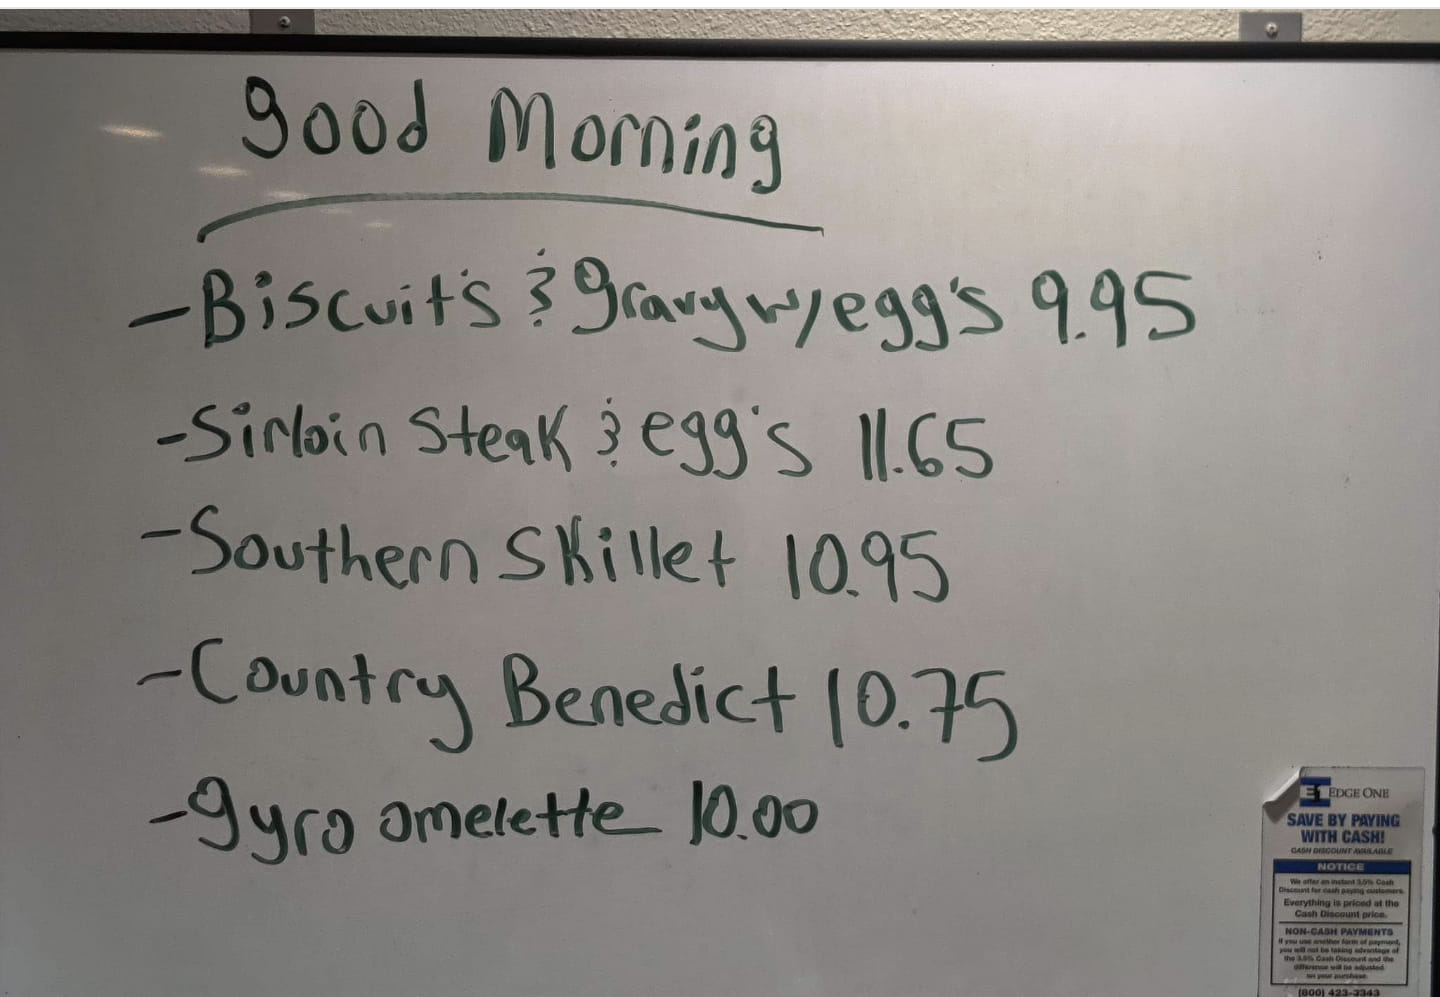 Good Morning
-Biscuit's & Gravy w/egg's 9.95
-Sirloin Steak & egg's 11.65
-Southern Skillet 10.95
-Country Benedict 10.75
-Gyro omelette 10.00
E1 EDGE ONE
SAVE BY PAYING
WITH CASH!
CASH DISCOUNT AVAILABLE
NOTICE
We offer an instant 3.5% Cash
Discount for cash paying customers.
Everything is priced at the
Cash Discount price.
NON-CASH PAYMENTS
If you use another form of payment,
you will not be taking advantage of
the 3.5% Cash Discount and the
difference will be adjusted
on your purchase.
(800) 423-3343